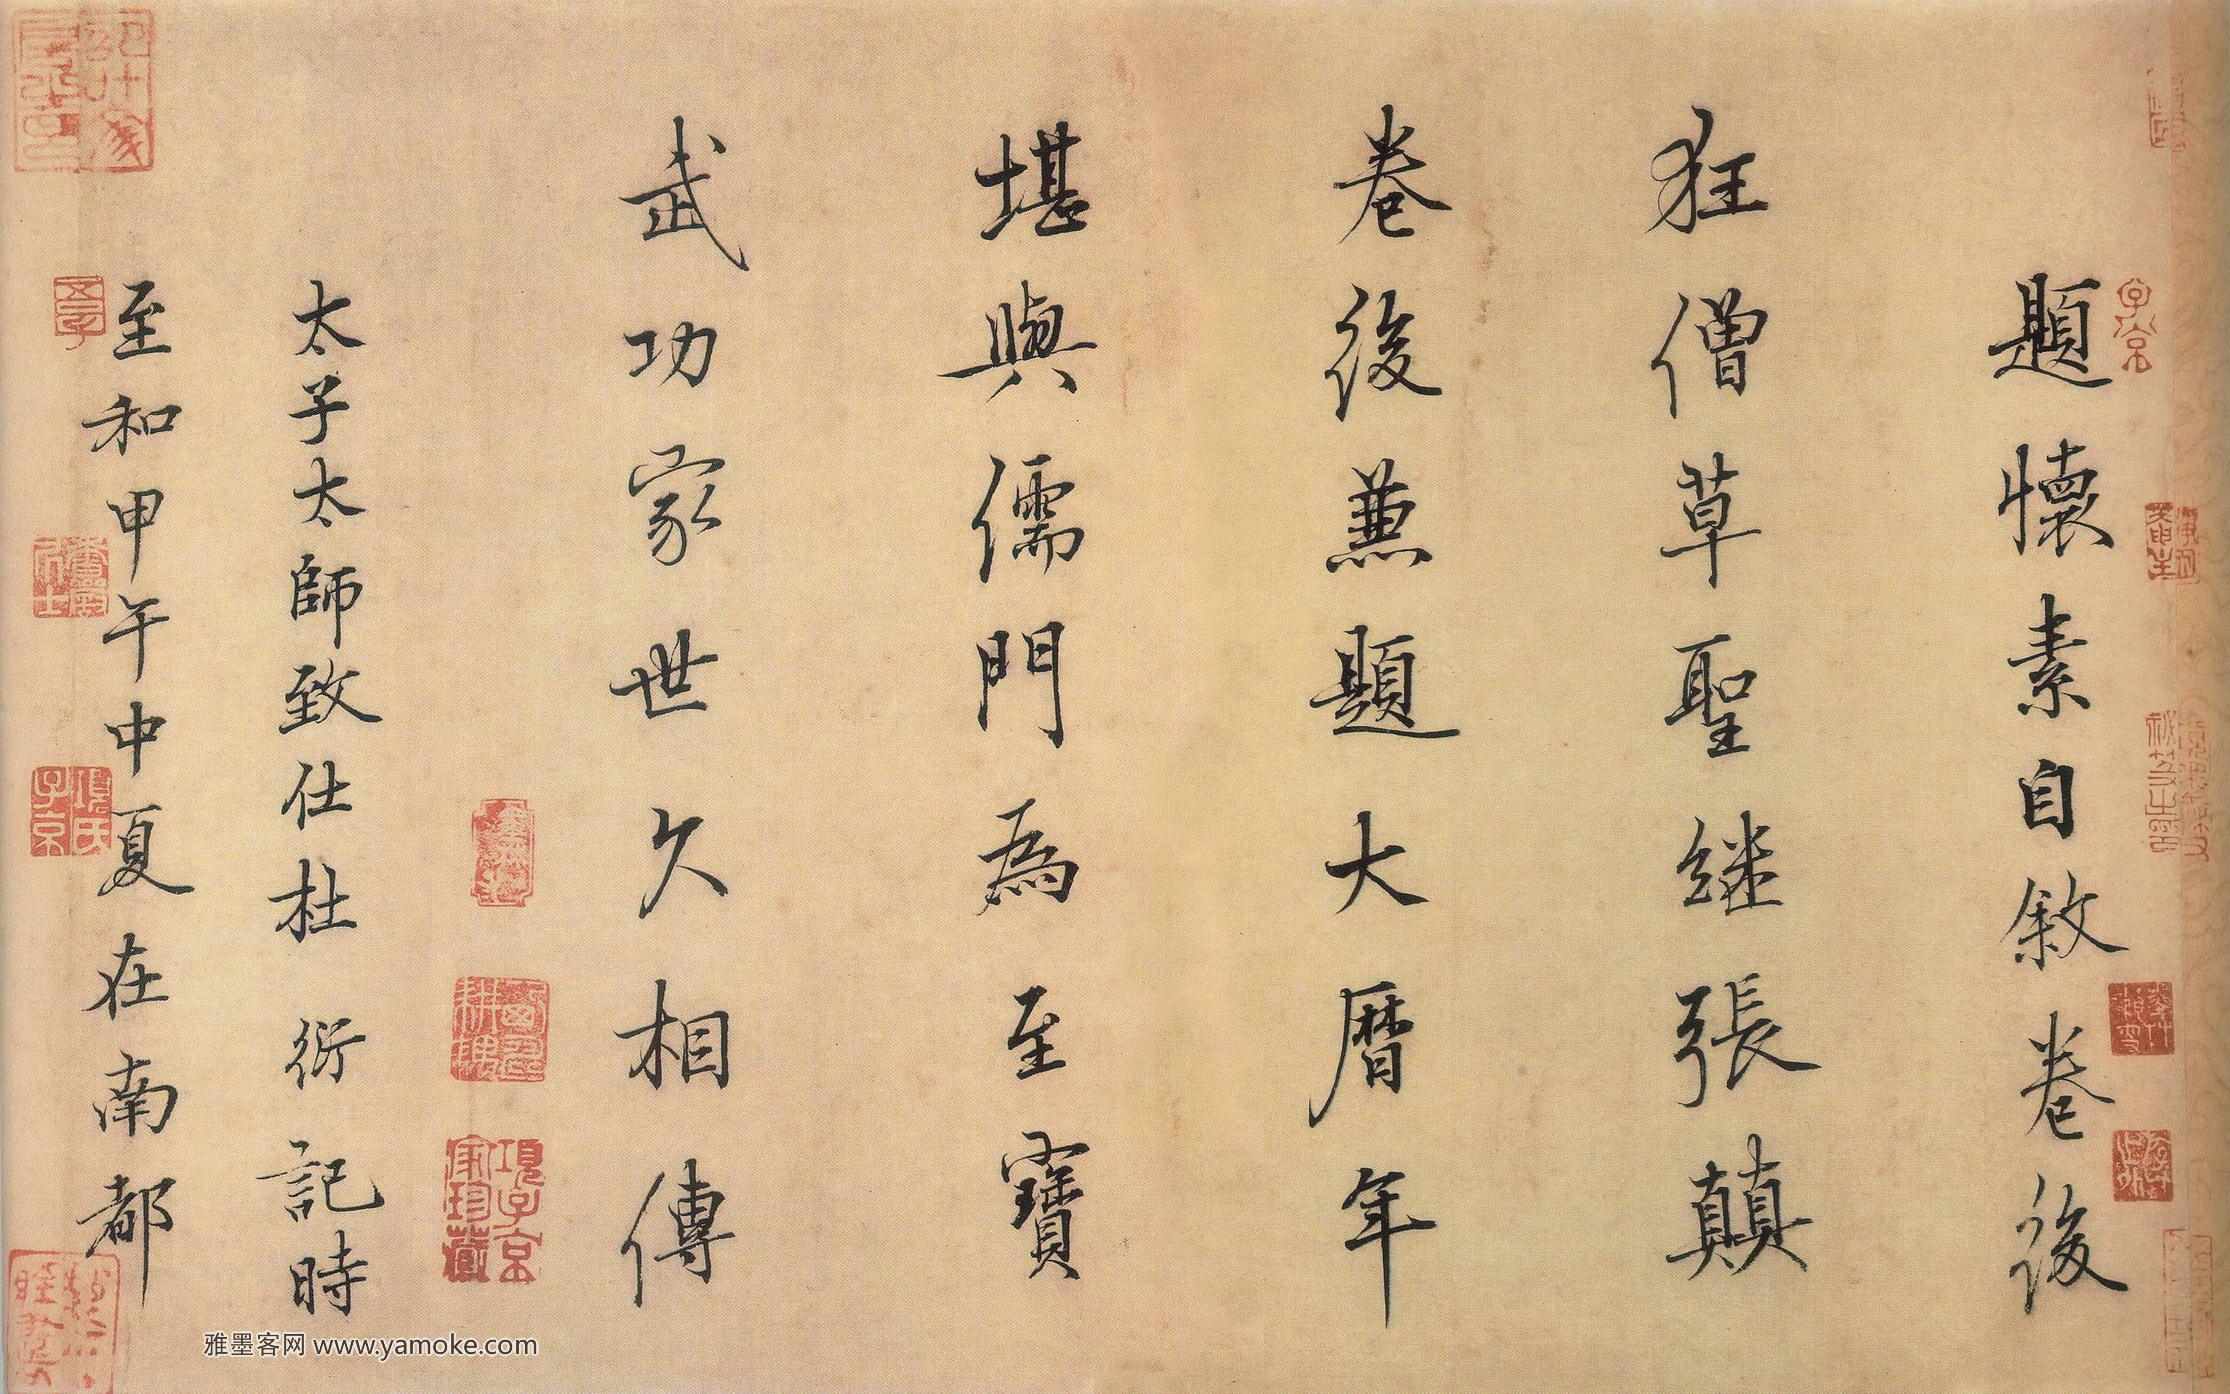 題懷素自敘卷後
狂僧草聖継張顛
卷後兼題大曆年
堪與儒門為至寶
武功家世久相傳
太子太師致仕杜衍記時
至和甲午中夏在南都
項子京家珍藏
項氏子京
子京
雅墨客网 www.yamoke.com